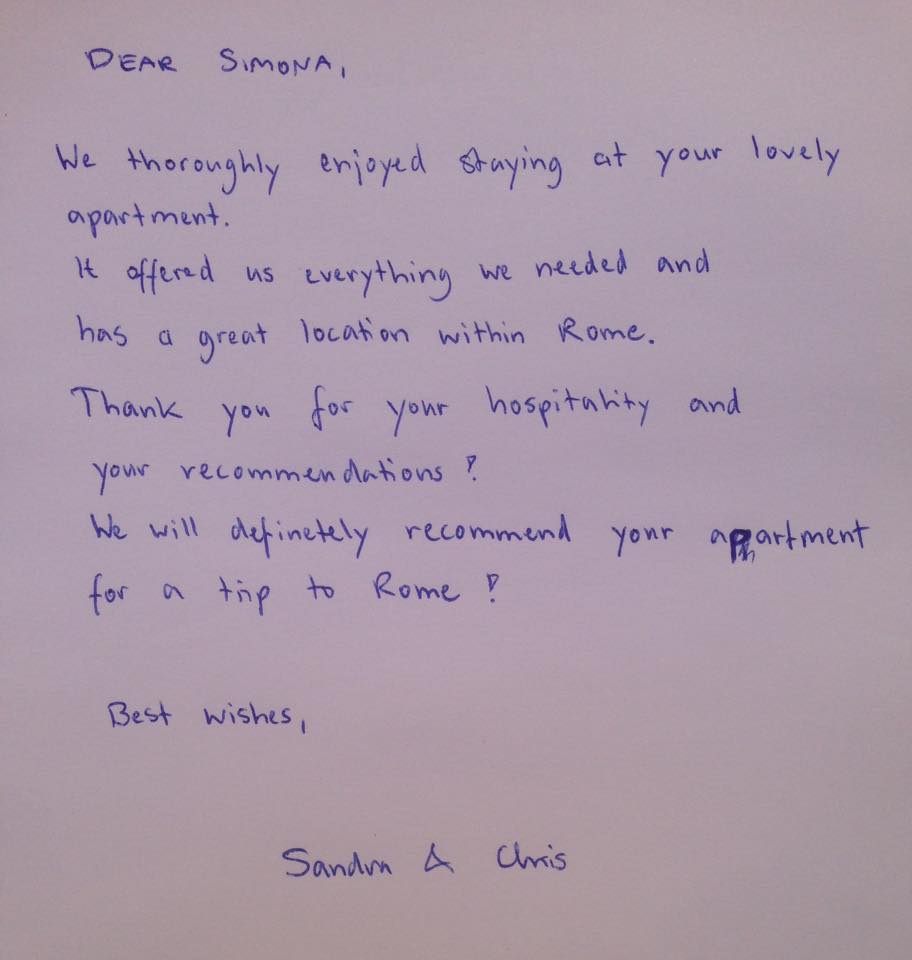 DEAR SIMONA,
We thoroughly enjoyed staying at your lovely
apartment.
It offered us everything we needed and
has a great location within Rome.
Thank you for your hospitality and
your recommendations!
We will definetely recommend your apartment
for a trip to Rome!
Best wishes,
Sandra & Chris